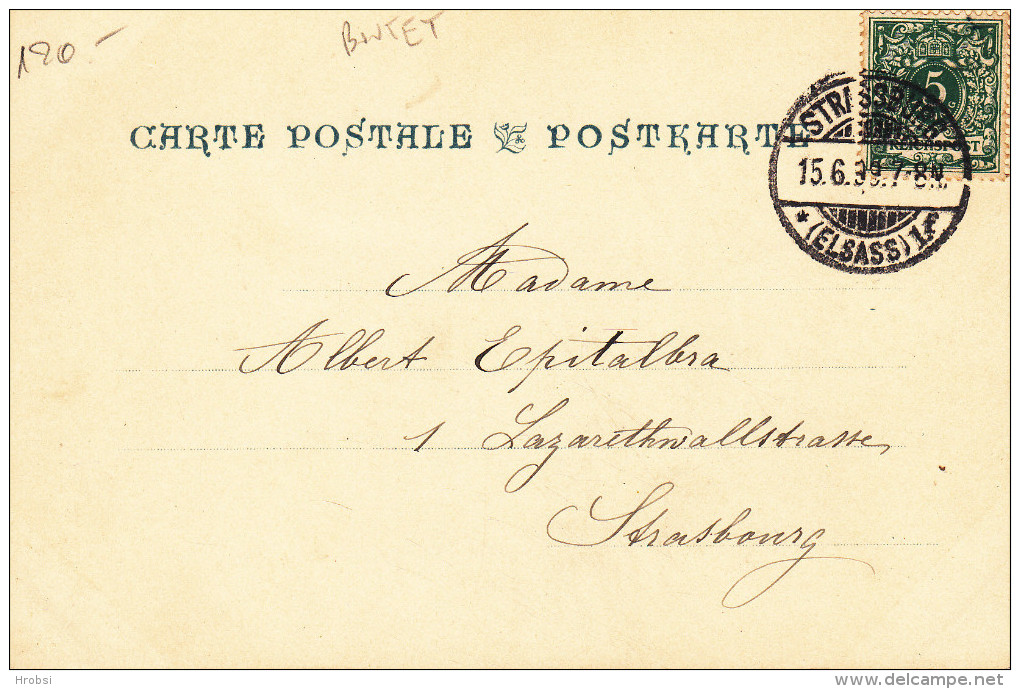 180-
BINTET
CARTE POSTALE POSTKARTE
5
REICHSPOST
STRASSBURG
15.6.99.7-8N.
* (ELSASS) 1.f
Madame
Albert Epitalbra
1 Lazarethwallstrasse,
Strasbourg
Hrobsi
www.delcampe.net